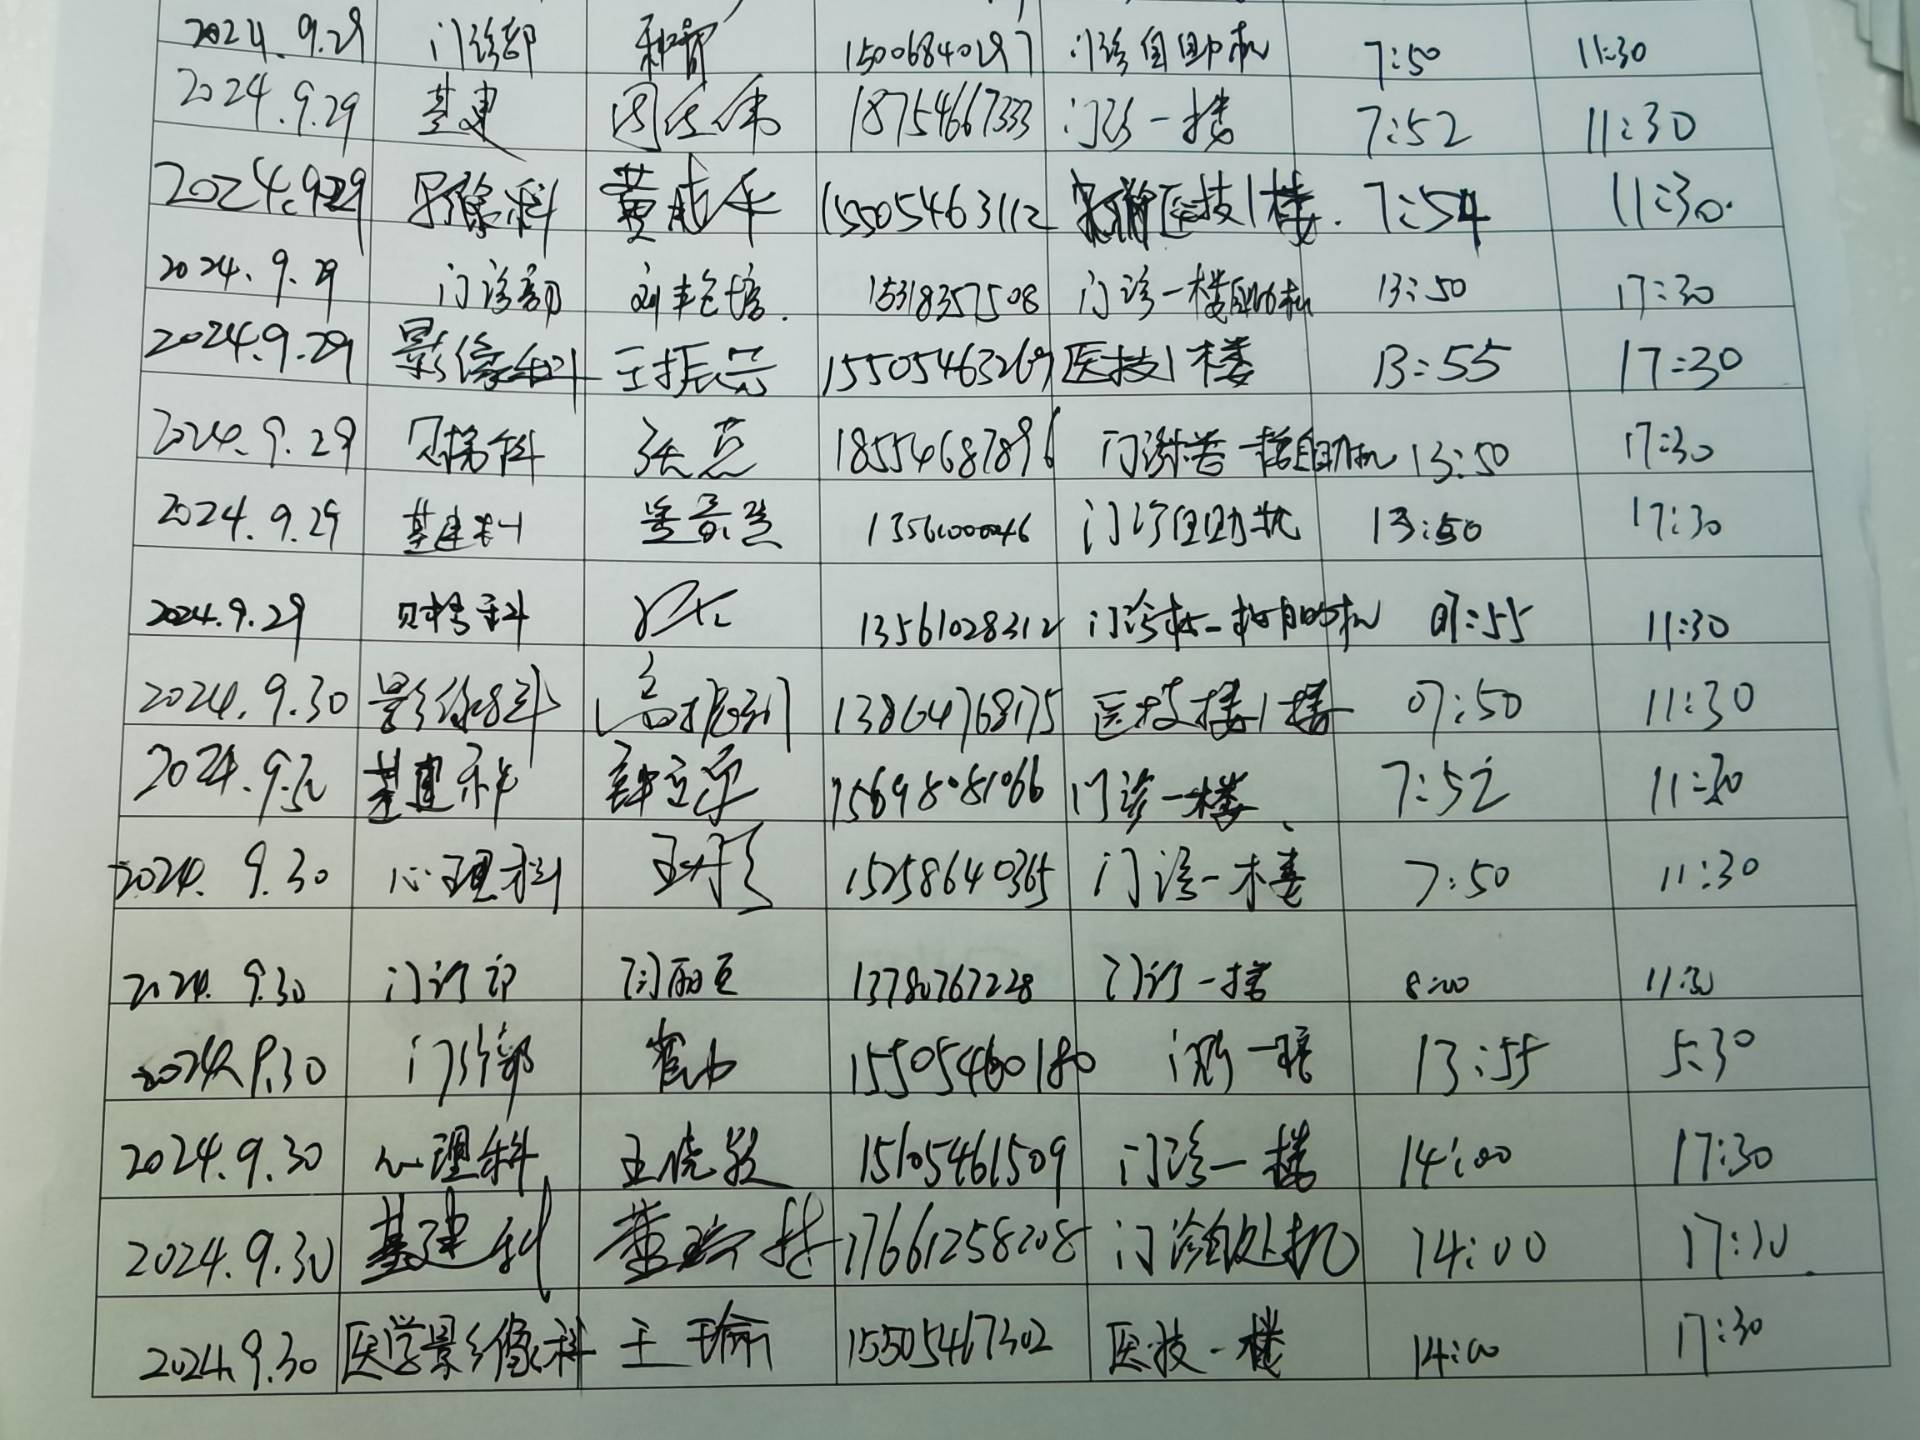 2024.9.29 门诊部 15006840297 门诊自助机 7:50 11:30
2024.9.29 基建 18754667333 门诊一楼 7:52 11:30
2024.9.29 影像科 黄成华 15505463112 医技1楼. 7:54 11:30.
2024.9.29 门诊部 刘艳 15318357508 门诊一楼自助机 13:50 17:30
2024.9.29 影像科 王振 15505463269 医技1楼 13:55 17:30
2024.9.29 财务科 张 18554687896 门诊一楼自助机 13:50 17:30
2024.9.29 基建科 13561000046 门诊自助机 13:50 17:30
2024.9.29 财务科 13561028312 门诊楼一楼自助机 07:55 11:30
2024.9.30 影像科 高 13864768175 医技楼1楼 07:50 11:30
2024.9.30 基建科 薛立 15698081066 门诊一楼 7:52 11:30
2024.9.30 心理科 王 15258640365 门诊一楼 7:50 11:30
2024.9.30 门诊部 闫丽 13780767228 门诊一楼 8:00 11:30
2024.9.30 门诊部 15505460180 门诊一楼 13:55 5:30
2024.9.30 心理科 王晓 15105461509 门诊一楼 14:00 17:30
2024.9.30 基建科 董 17661258208 门诊自处机 14:00 17:30
2024.9.30 医学影像科 王瑜 15505467302 医技一楼 14:00 17:30